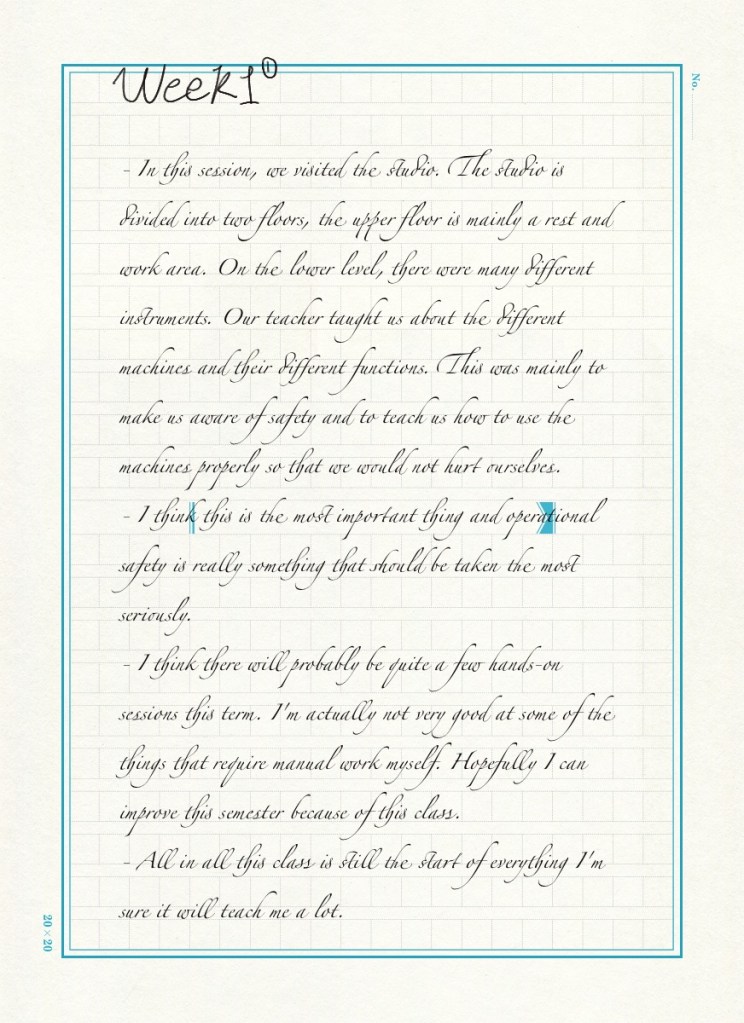 Week1①
No.
- In this session, we visited the studio. The studio is
divided into two floors, the upper floor is mainly a rest and
work area. On the lower level, there were many different
instruments. Our teacher taught us about the different
machines and their different functions. This was mainly to
make us aware of safety and to teach us how to use the
machines properly so that we would not hurt ourselves.
- I think this is the most important thing and operational
safety is really something that should be taken the most
seriously.
- I think there will probably be quite a few hands-on
sessions this term. I'm actually not very good at some of the
things that require manual work myself. Hopefully I can
improve this semester because of this class.
- All in all this class is still the start of everything I'm
sure it will teach me a lot.
20×20